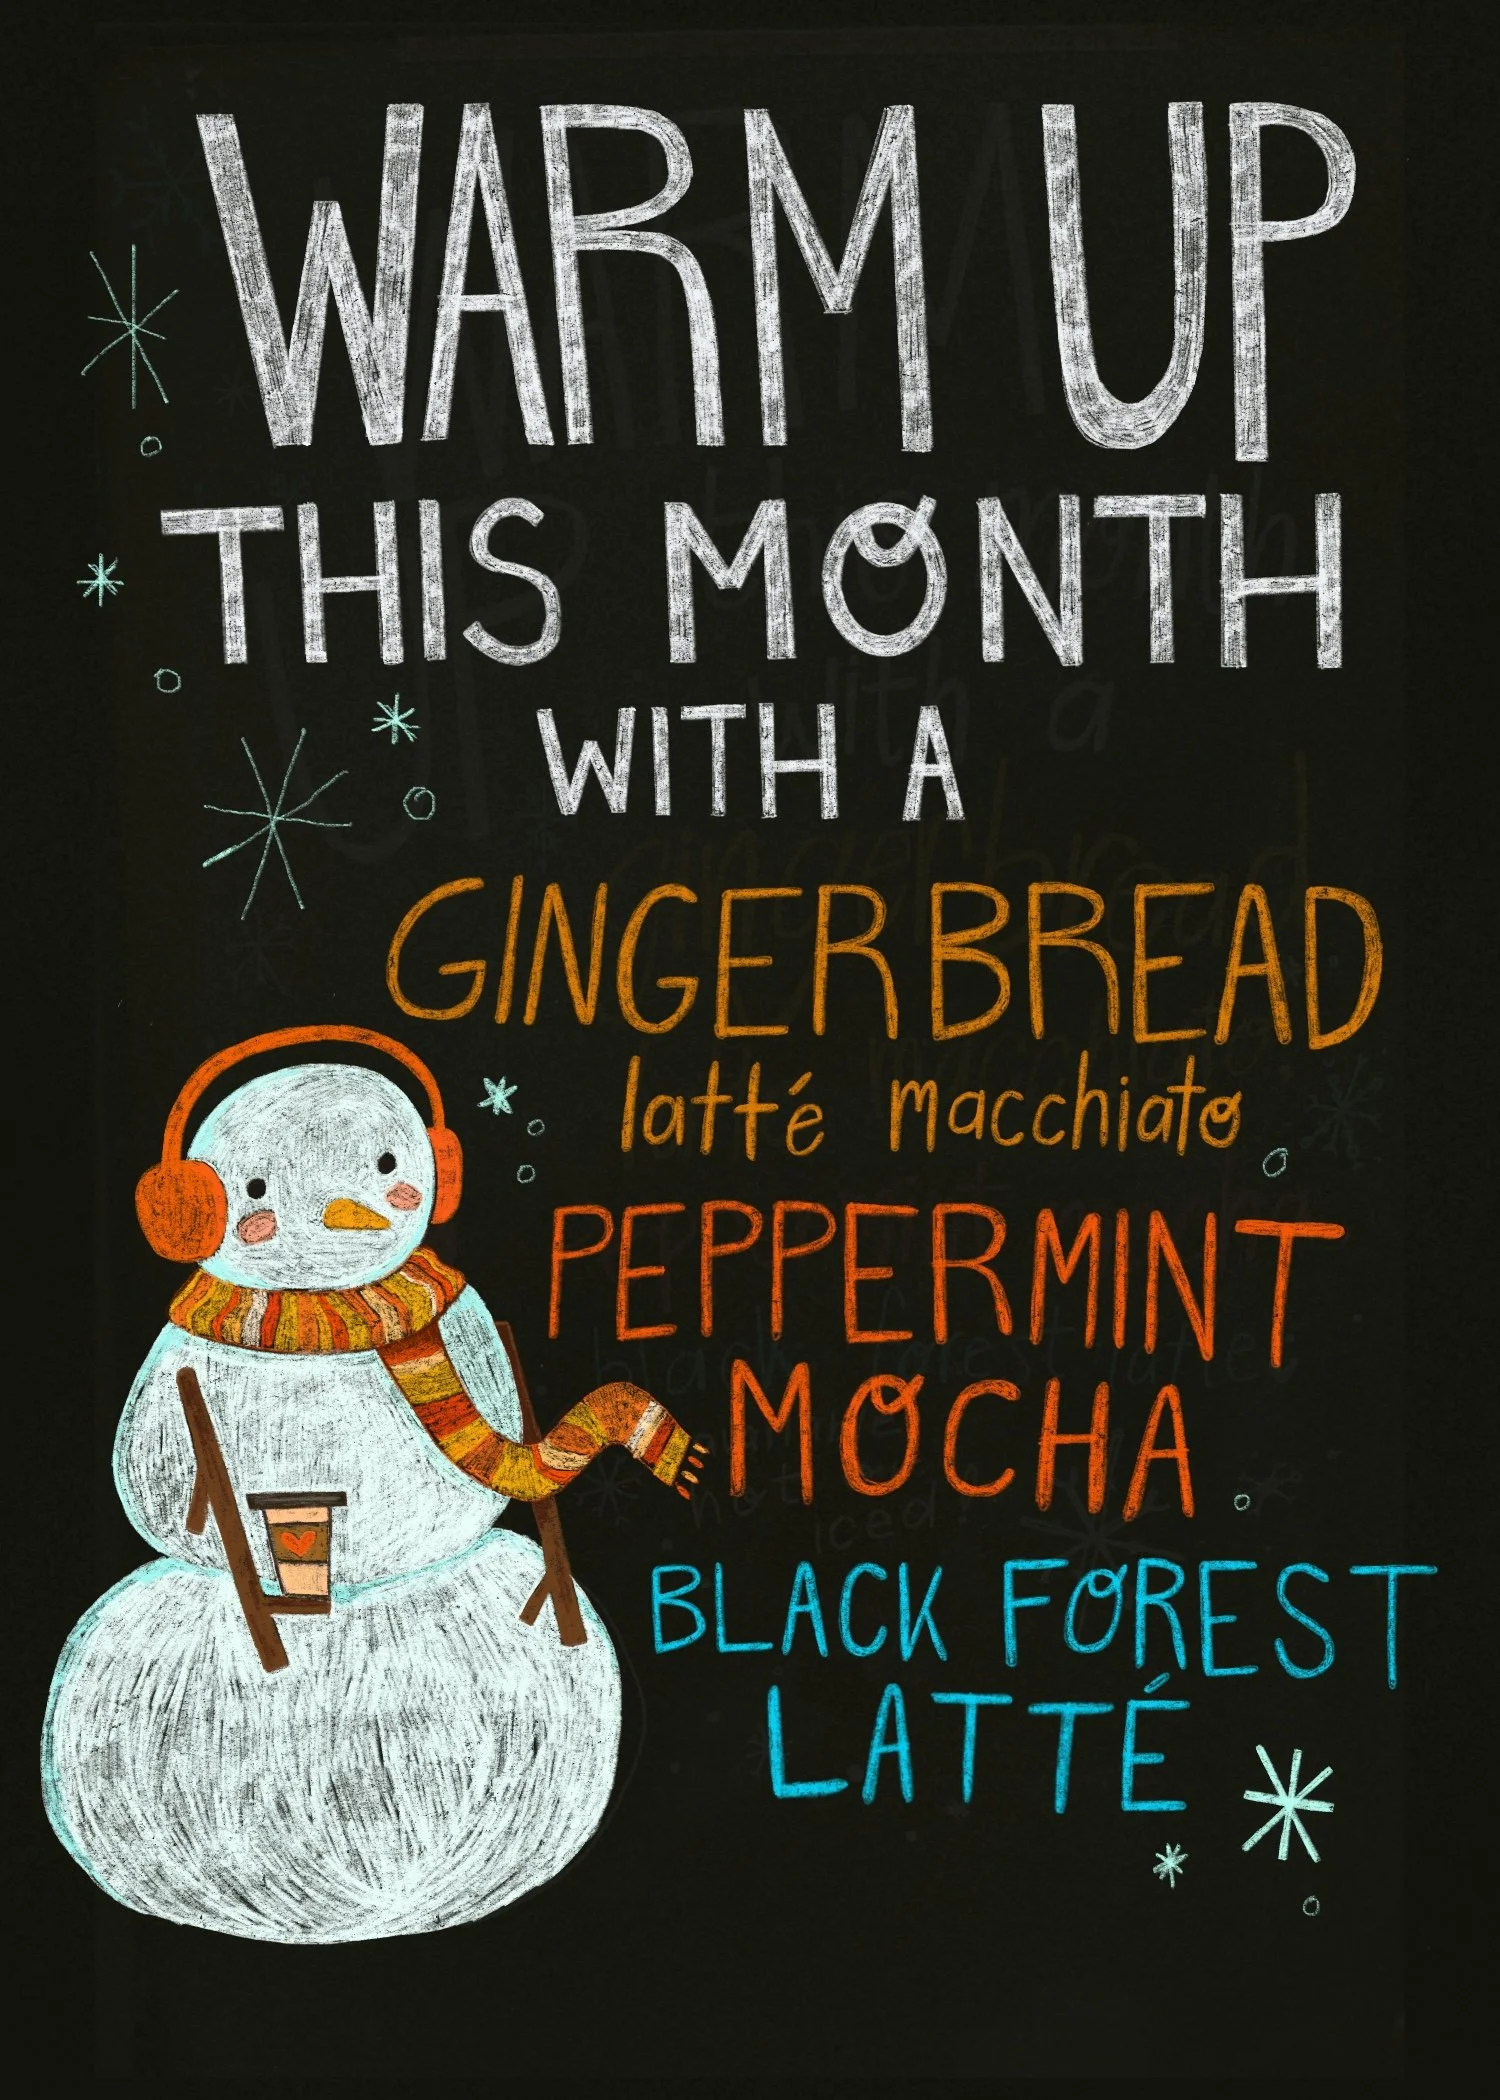 WARM UP
THIS MONTH
WITH A
GINGERBREAD
latté macchiato
PEPPERMINT
MOCHA
BLACK FOREST
LATTÉ